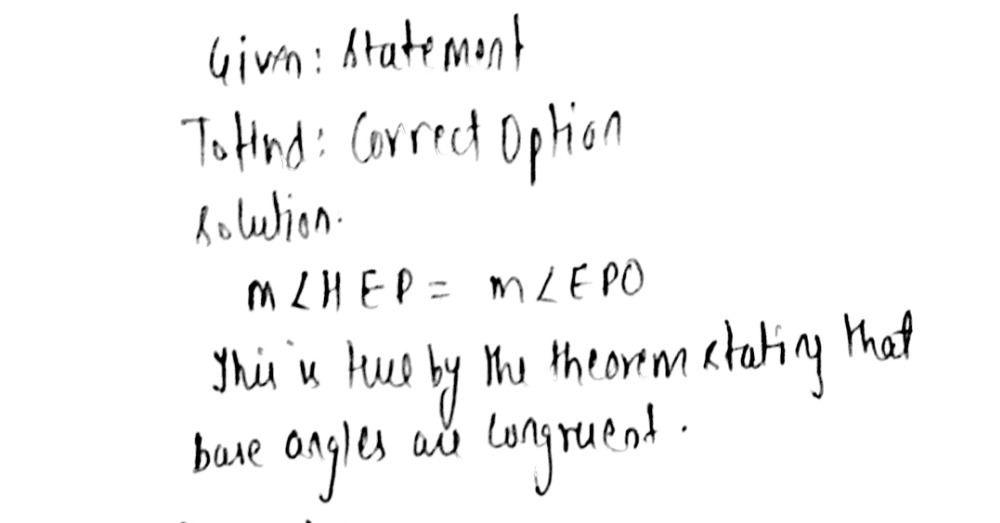 Given: Statement
To find: Correct Option
Solution.
m∠HEP = m∠EPO
This is true by the theorem stating that
base angles are congruent.